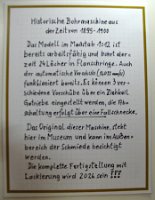 Historische Bohrmaschine aus
der Zeit von 1895-1900
Das Modell im Maßstab 1:12 ist
bereits arbeitsfähig und bohrt der-
zeit 24 Löcher in Flanschringe. Auch
der automatische Vorschub
funktioniert bereits. Es können 3 ver-
schiedene Vorschübe über ein Ziehkeil
Getriebe eingestellt werden, die Ab-
schaltung erfolgt über eine Fallschnecke.
Das Original dieser Maschine, steht
hier im Museum und kann im Außen-
bereich der Schmiede besichtigt
werden.
Die komplette Fertigstellung mit
Lackierung wird 2026 sein !!!